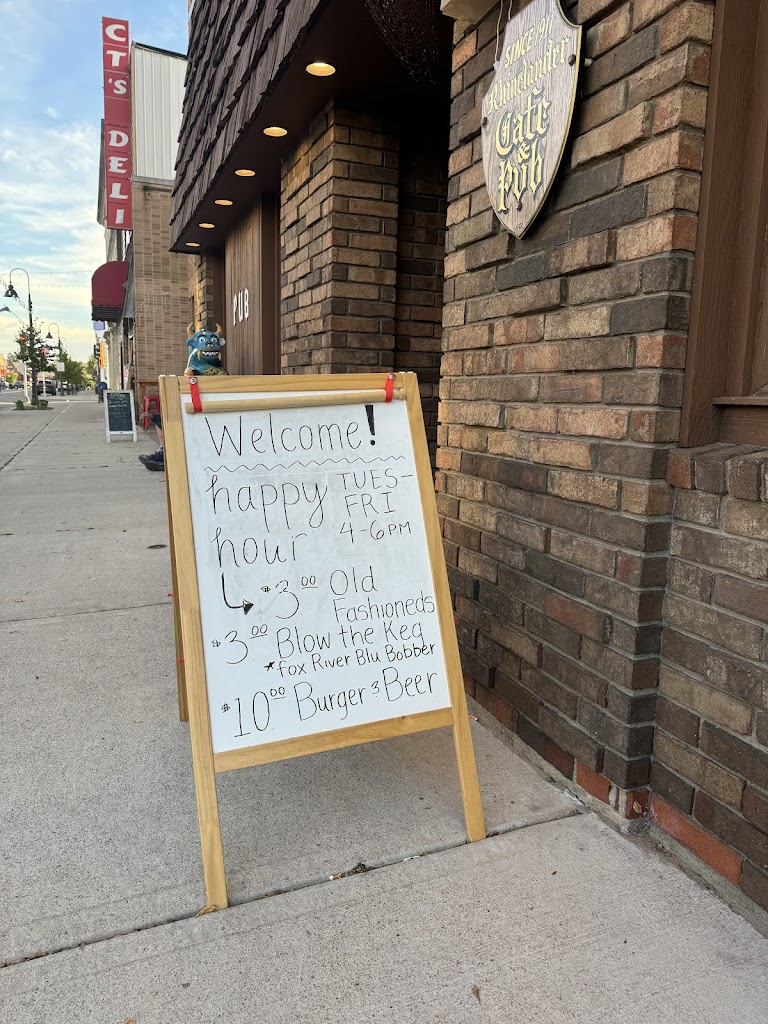 CT'S DELI
SINCE 1911
Rhinelander
Café
&
Pub
PUB
Welcome!
happy
hour
TUES-
FRI
4-6PM
$3.00 Old
Fashioneds
$3.00 Blow the Keg
*Fox River Blu Bobber
$10.00 Burger & Beer